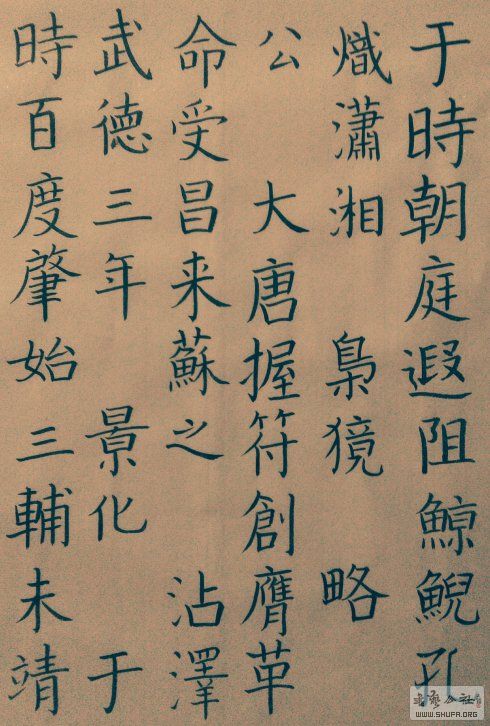 于時朝庭遐阻鯨鯢孔
熾瀟湘 梟獍 略
公 大唐握符創膺革
命受昌来蘇之 沾澤
武德三年 景化 于
時百度肇始三輔未靖
WWW.SHUFA.ORG